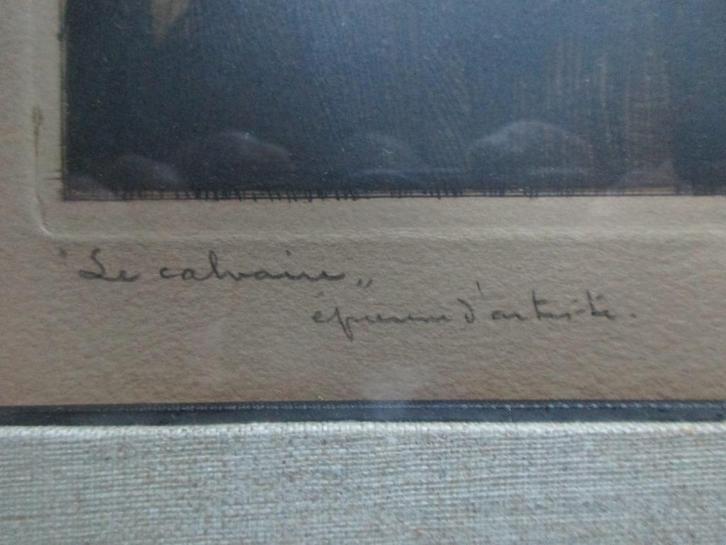 "Le calvaire"
épreuve d'artiste.